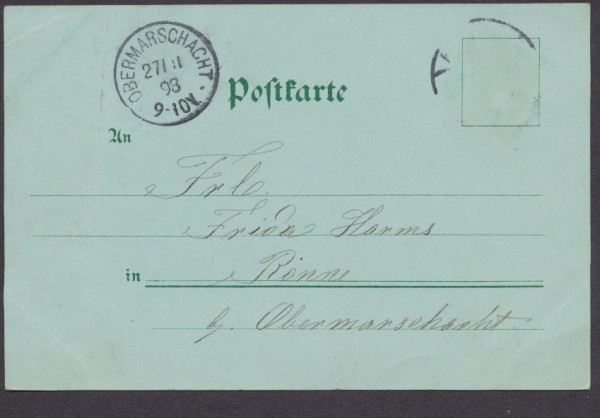 OBERMARSCHACHT
27/11
98
9-10V.
Postkarte
An
Frl.
Frida Harms
in Rönne
b. Obermarschacht